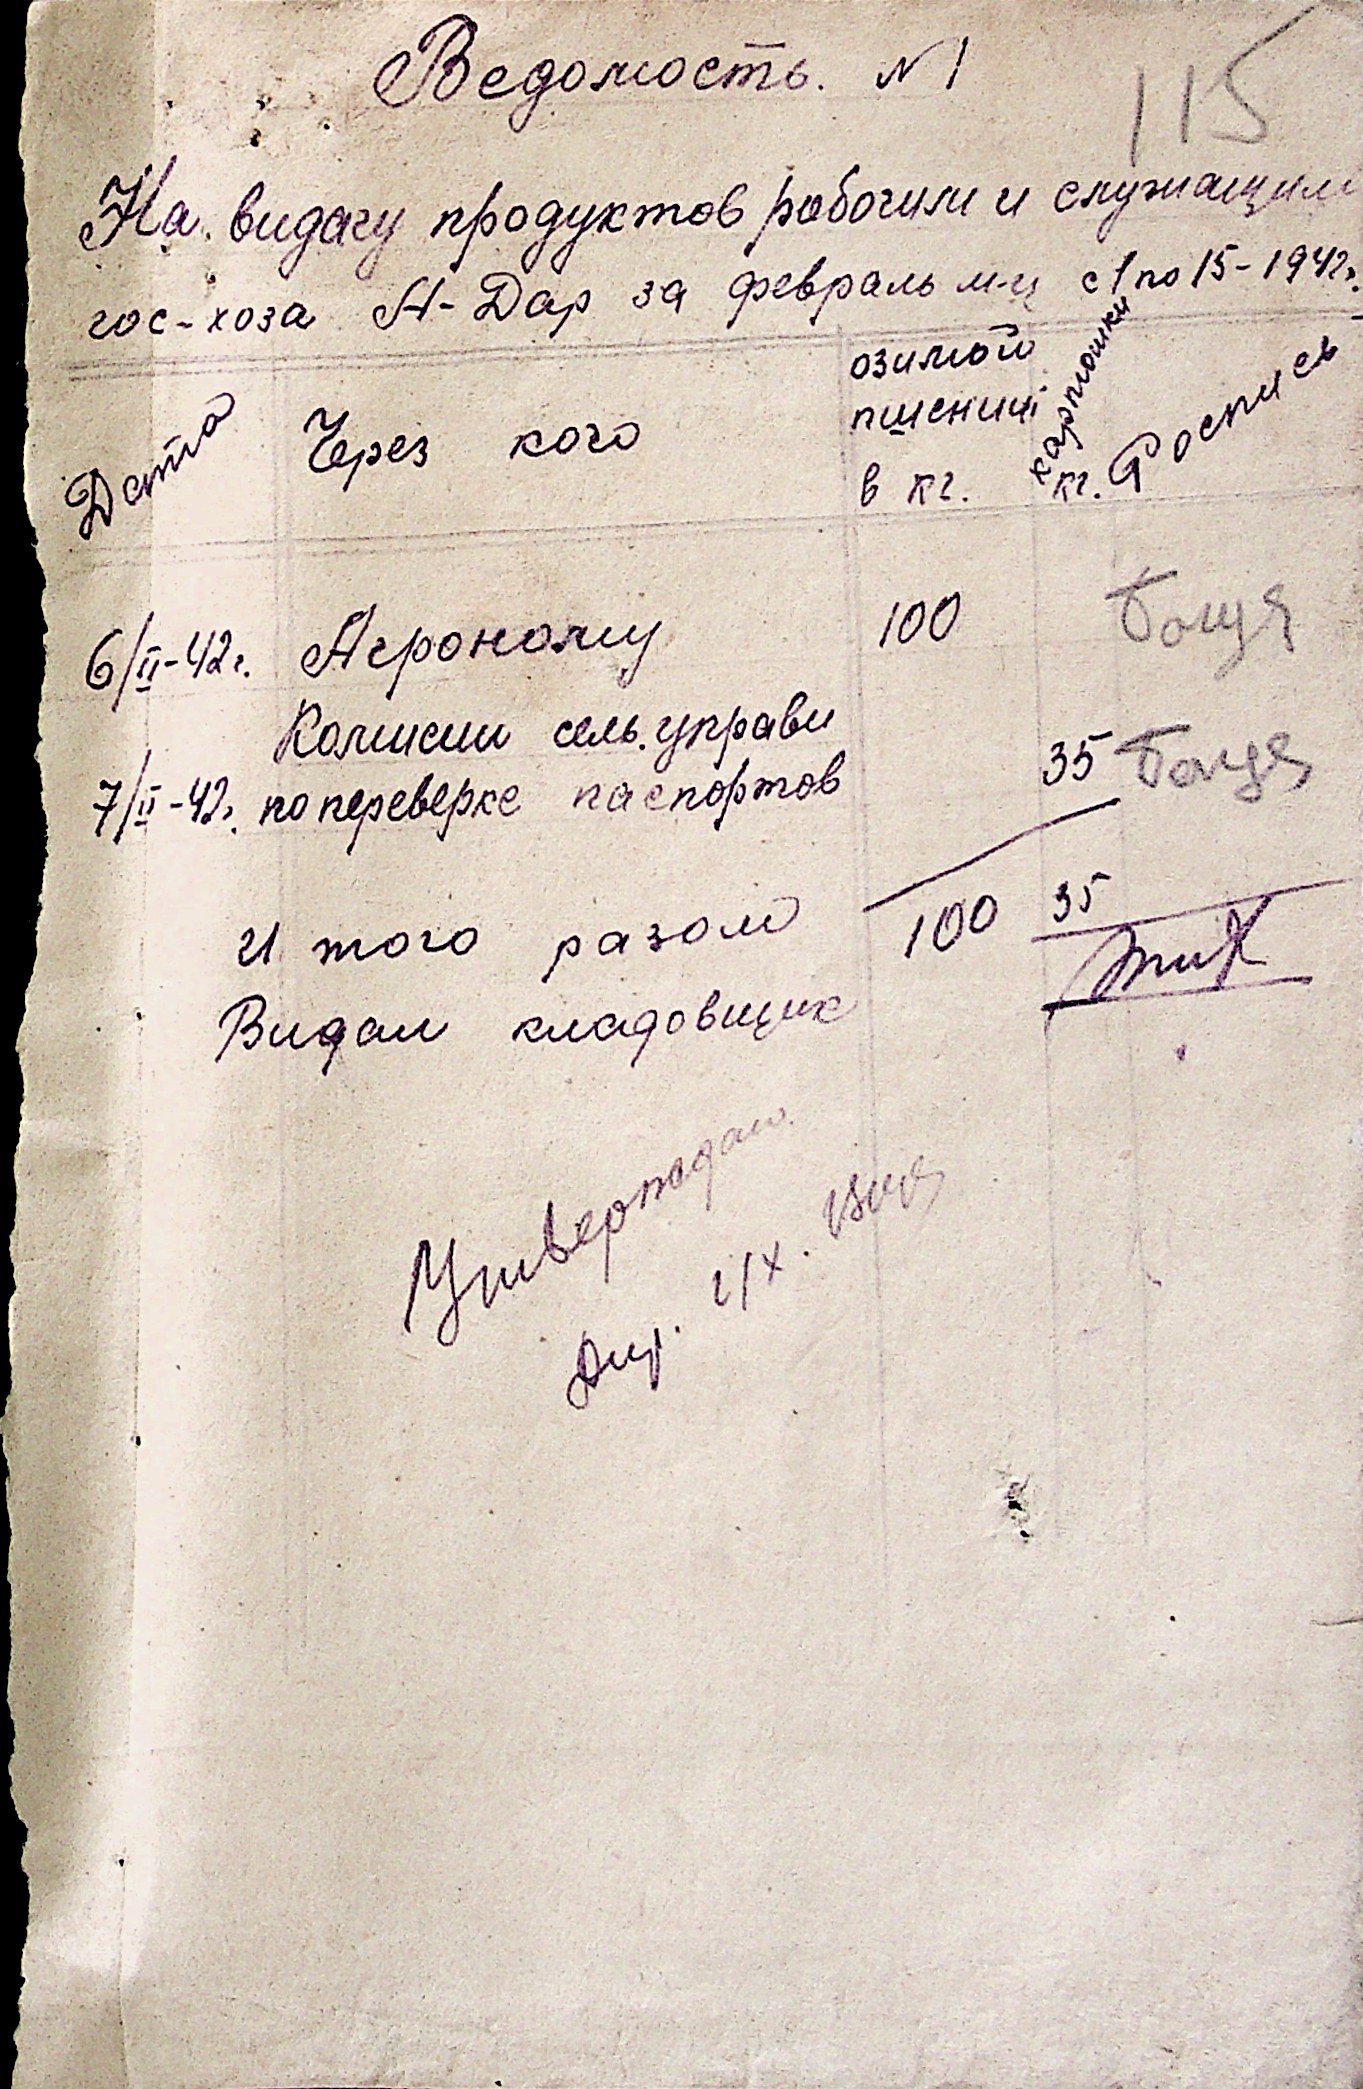 Ведомость. № 1
115
На видачу продуктов рабочим и служащим
гос-хоза А-Дар за февраль м-ц с 1 по 15-1942г.
Дата
Через кого
озимой
пшениці
в кг.
картошки
кг.
Роспись
6/II-42г. Агроному 100 Боця
Комисии сель.управи
7/II-42г. по переверке паспортов 35 Боця
И того разом 100 35
Видал кладовщик
Утверждаю
Дир. г/х.